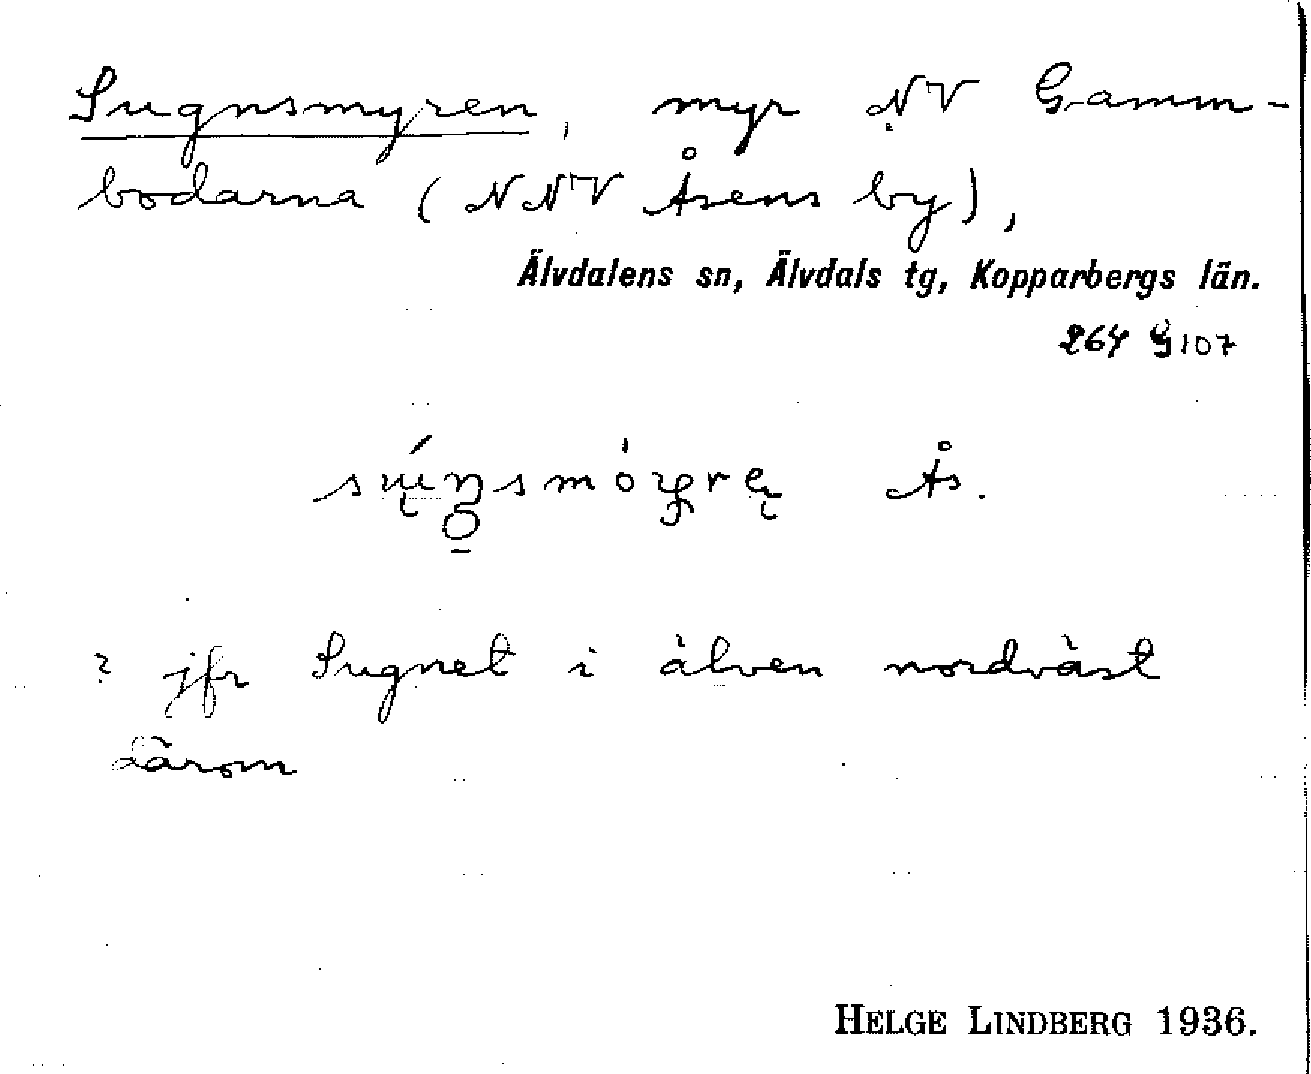 Sugnsmyren, myr NV Gamm-
bodarna (NNV Åsens by),
Älvdalens sn, Älvdals tg, Kopparbergs län.
264 G 107
Ås.
? jfr Sugnet i älven nordväst
därom
HELGE LINDBERG 1936.